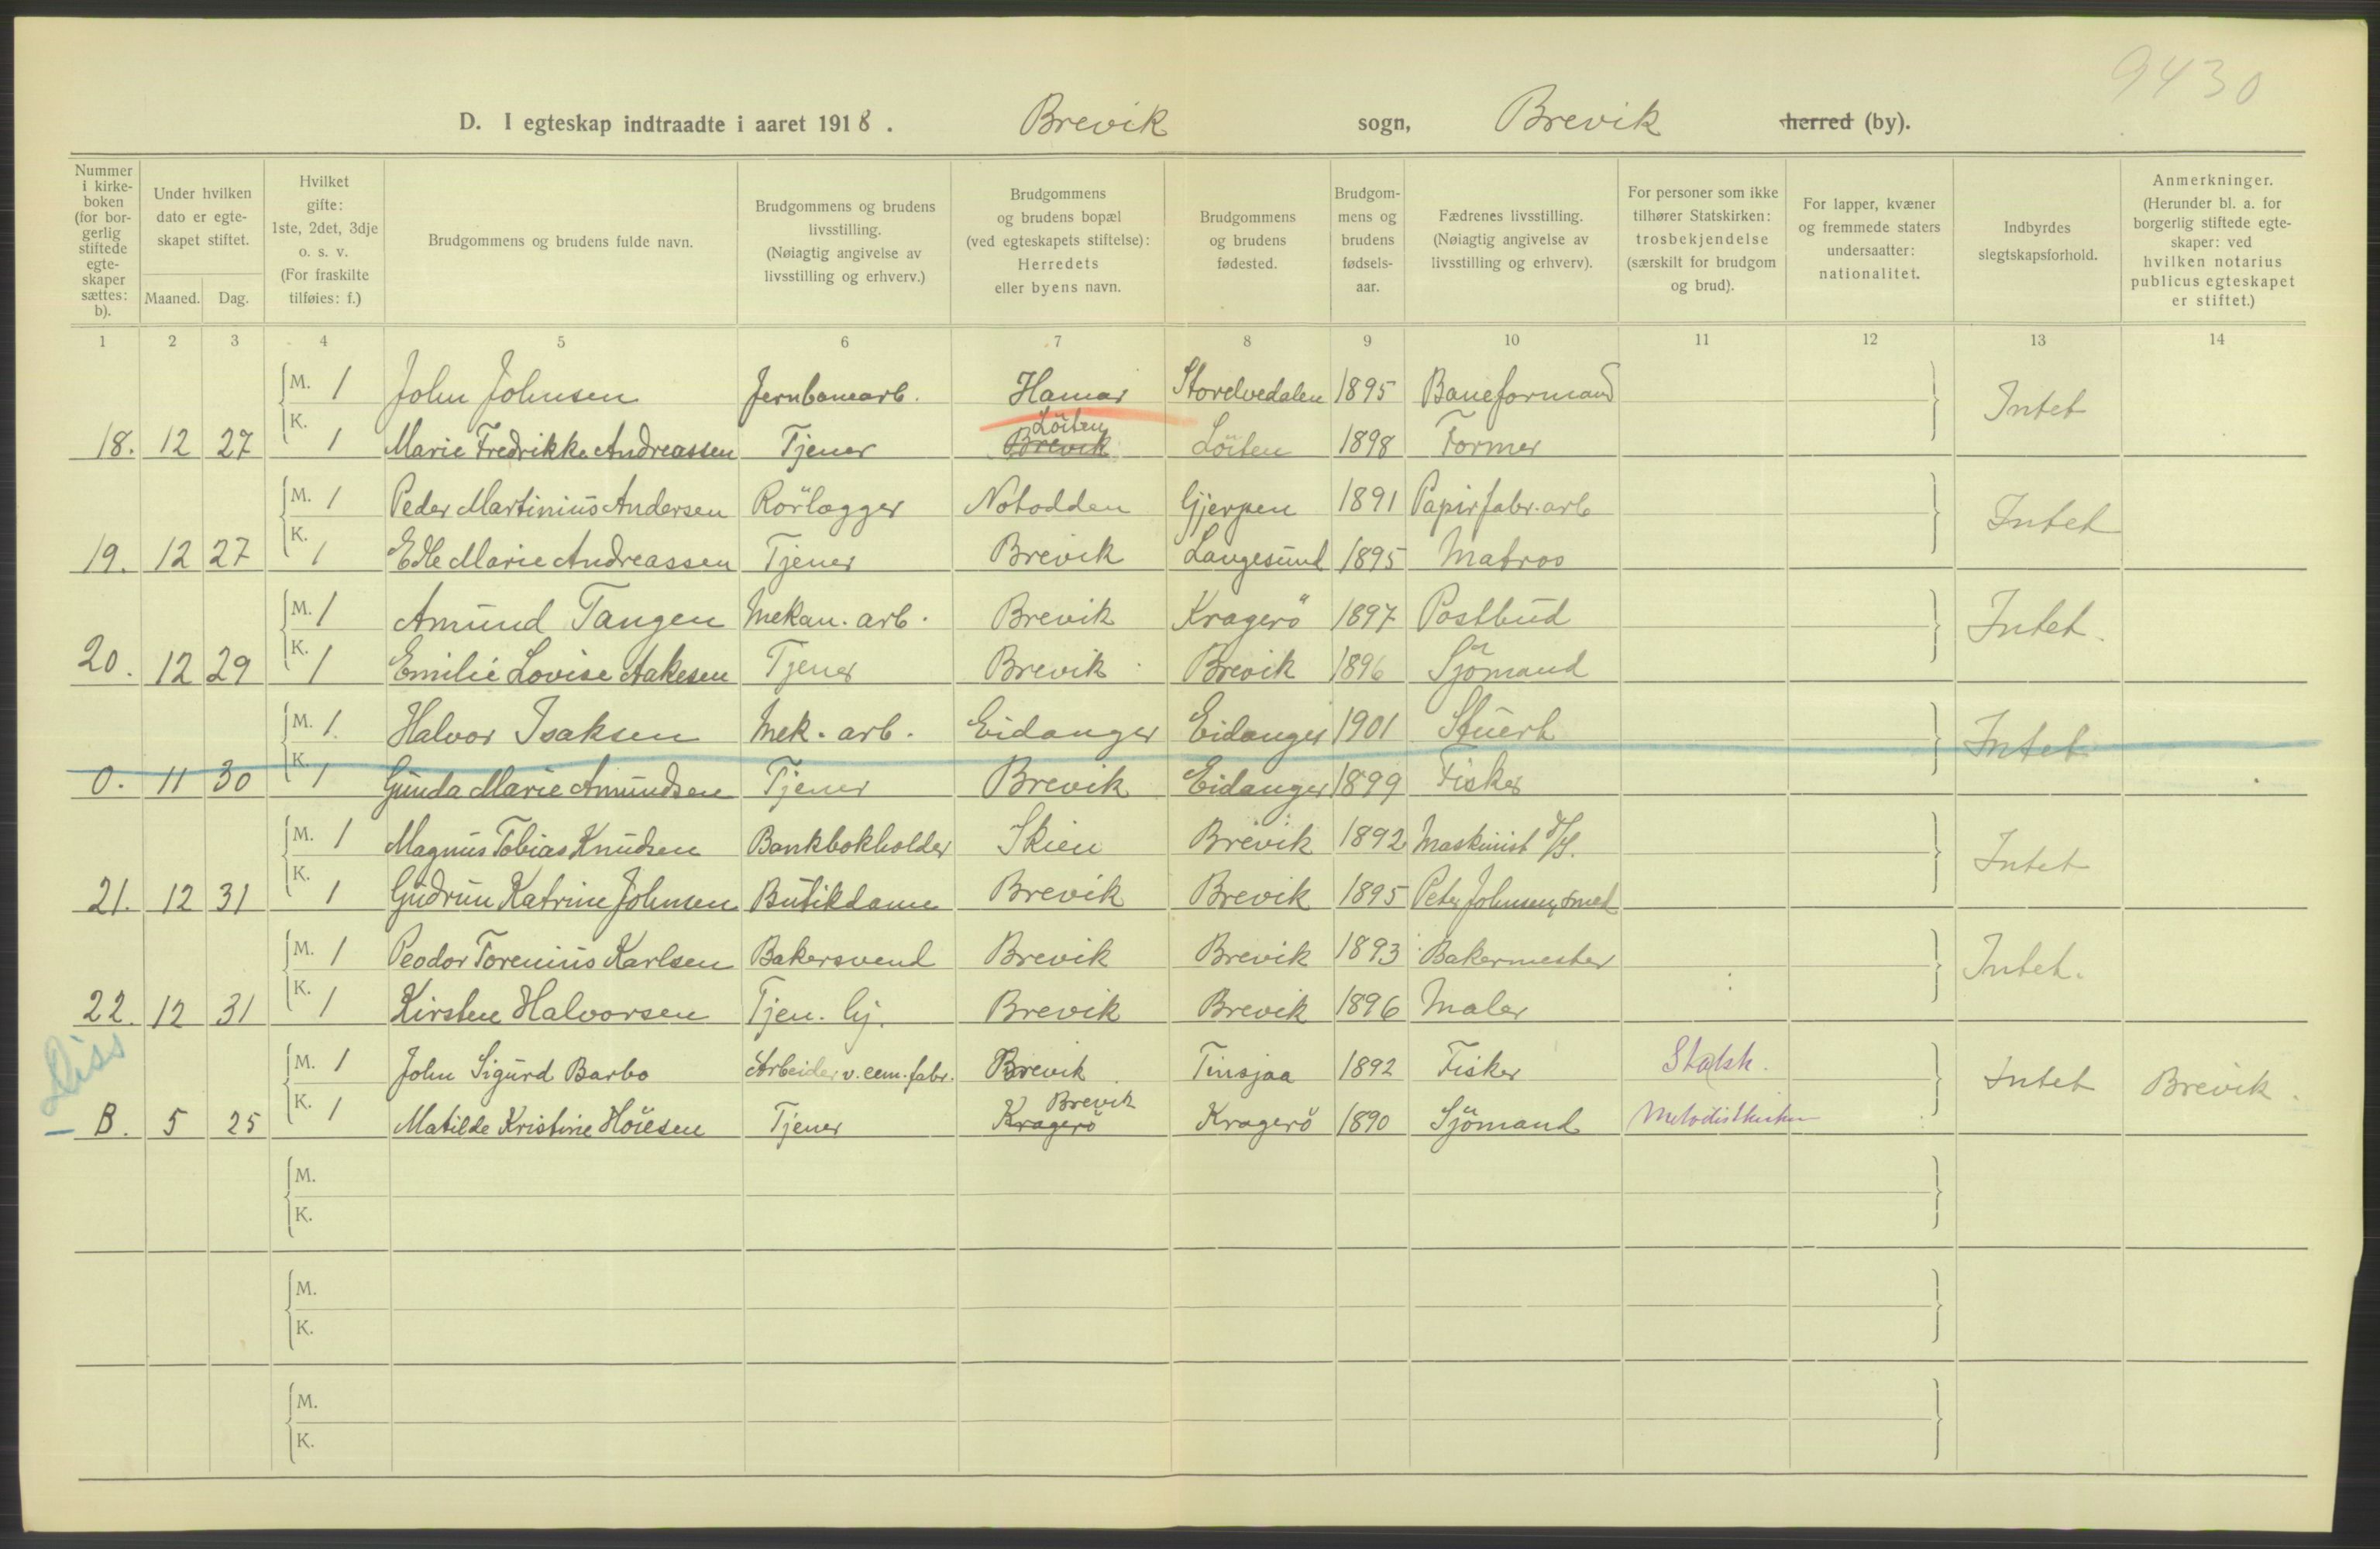 9430
D. I egteskap indtraadte i aaret 1918. Brevik sogn, Brevik herred (by).
Nummer i kirkeboken (for borgerlig stiftede egteskaper sættes: b).
Under hvilken dato er egteskapet stiftet.
Maaned. Dag.
Hvilket gifte: 1ste, 2det, 3dje o. s. v. (For fraskilte tilføies: f.)
Brudgommens og brudens fulde navn.
Brudgommens og brudens livsstilling. (Nøiagtig angivelse av livsstilling og erhverv.)
Brudgommens og brudens bopæl (ved egteskapets stiftelse): Herredets eller byens navn.
Brudgommens og brudens fødested.
Brudgommens og brudens fødselsaar.
Fædrenes livsstilling. (Nøiagtig angivelse av livsstilling og erhverv).
For personer som ikke tilhører Statskirken: trosbekjendelse (særskilt for brudgom og brud).
For lapper, kvæner og fremmede staters undersaatter: nationalitet.
Indbyrdes slegtskapsforhold.
Anmerkninger. (Herunder bl. a. for borgerlig stiftede egteskaper: ved hvilken notarius publicus egteskapet er stiftet.)
1 2 3 4 5 6 7 8 9 10 11 12 13 14
M. 1 John Johnsen Jernbanearb. Hamar Storelvedalen 1895 Baneformand Intet
18. 12 27 K. 1 Marie Fredrikke Andreassen Tjener Brevik Löiten Löiten 1898 Former
M. 1 Peder Martinius Andersen Rörlægger Notodden Gjerpen 1891 Papirfabr. arb Intet
19. 12 27 K. 1 Edle Marie Andreassen Tjener Brevik Langesund 1895 Matros
M. 1 Amund Tangen Mekan. arb. Brevik Kragerö 1897 Postbud Intet.
20. 12 29 K. 1 Emilie Lovise Aakesen Tjener Brevik Brevik 1896 Sjömand
M. 1. Halvor Isaksen Mek. arb. Eidanger Eidanger 1901 Stuert Intet
0. 11 30 K. 1 Gunda Marie Amundsen Tjener Brevik Eidanger 1899 Fisker
M. 1 Magnus Tobias Knudsen Bankbokholder Skien Brevik 1892 Maskinist D/S. Intet
21. 12 31 K. 1 Gudrun Katrine Johnsen Butikdame Brevik Brevik 1895 Peter Johnsen, smed
M. 1 Peodor Torenius Karlsen Bakersvend Brevik Brevik 1893 Bakermester Intet.
22. 12 31 K. 1 Kirsten Halvorsen Tjen. hj. Brevik Brevik 1896 Maler
Diss
M. 1 John Sigurd Barbo Arbeider v. cem. fabr. Brevik Tinsjaa 1892 Fisker Statsk. Intet Brevik.
B. 5 25 K. 1 Matilde Kristine Höiesen Tjener Kragerö Brevik Kragerö 1890 Sjömand Metodistkirken
M.
K.
M.
K.
M.
K.